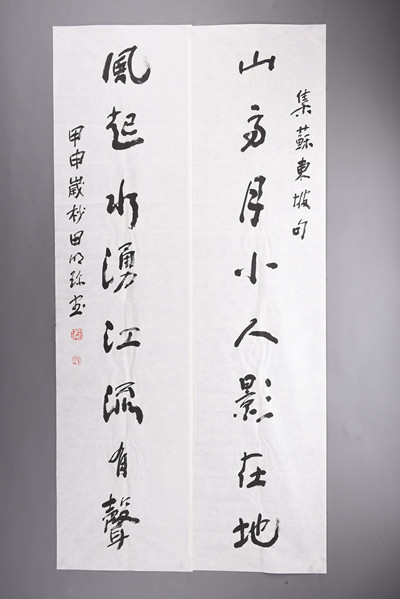 集蘇東坡句
山高月小人影在地
風起水湧江流有聲
甲申歲杪田書